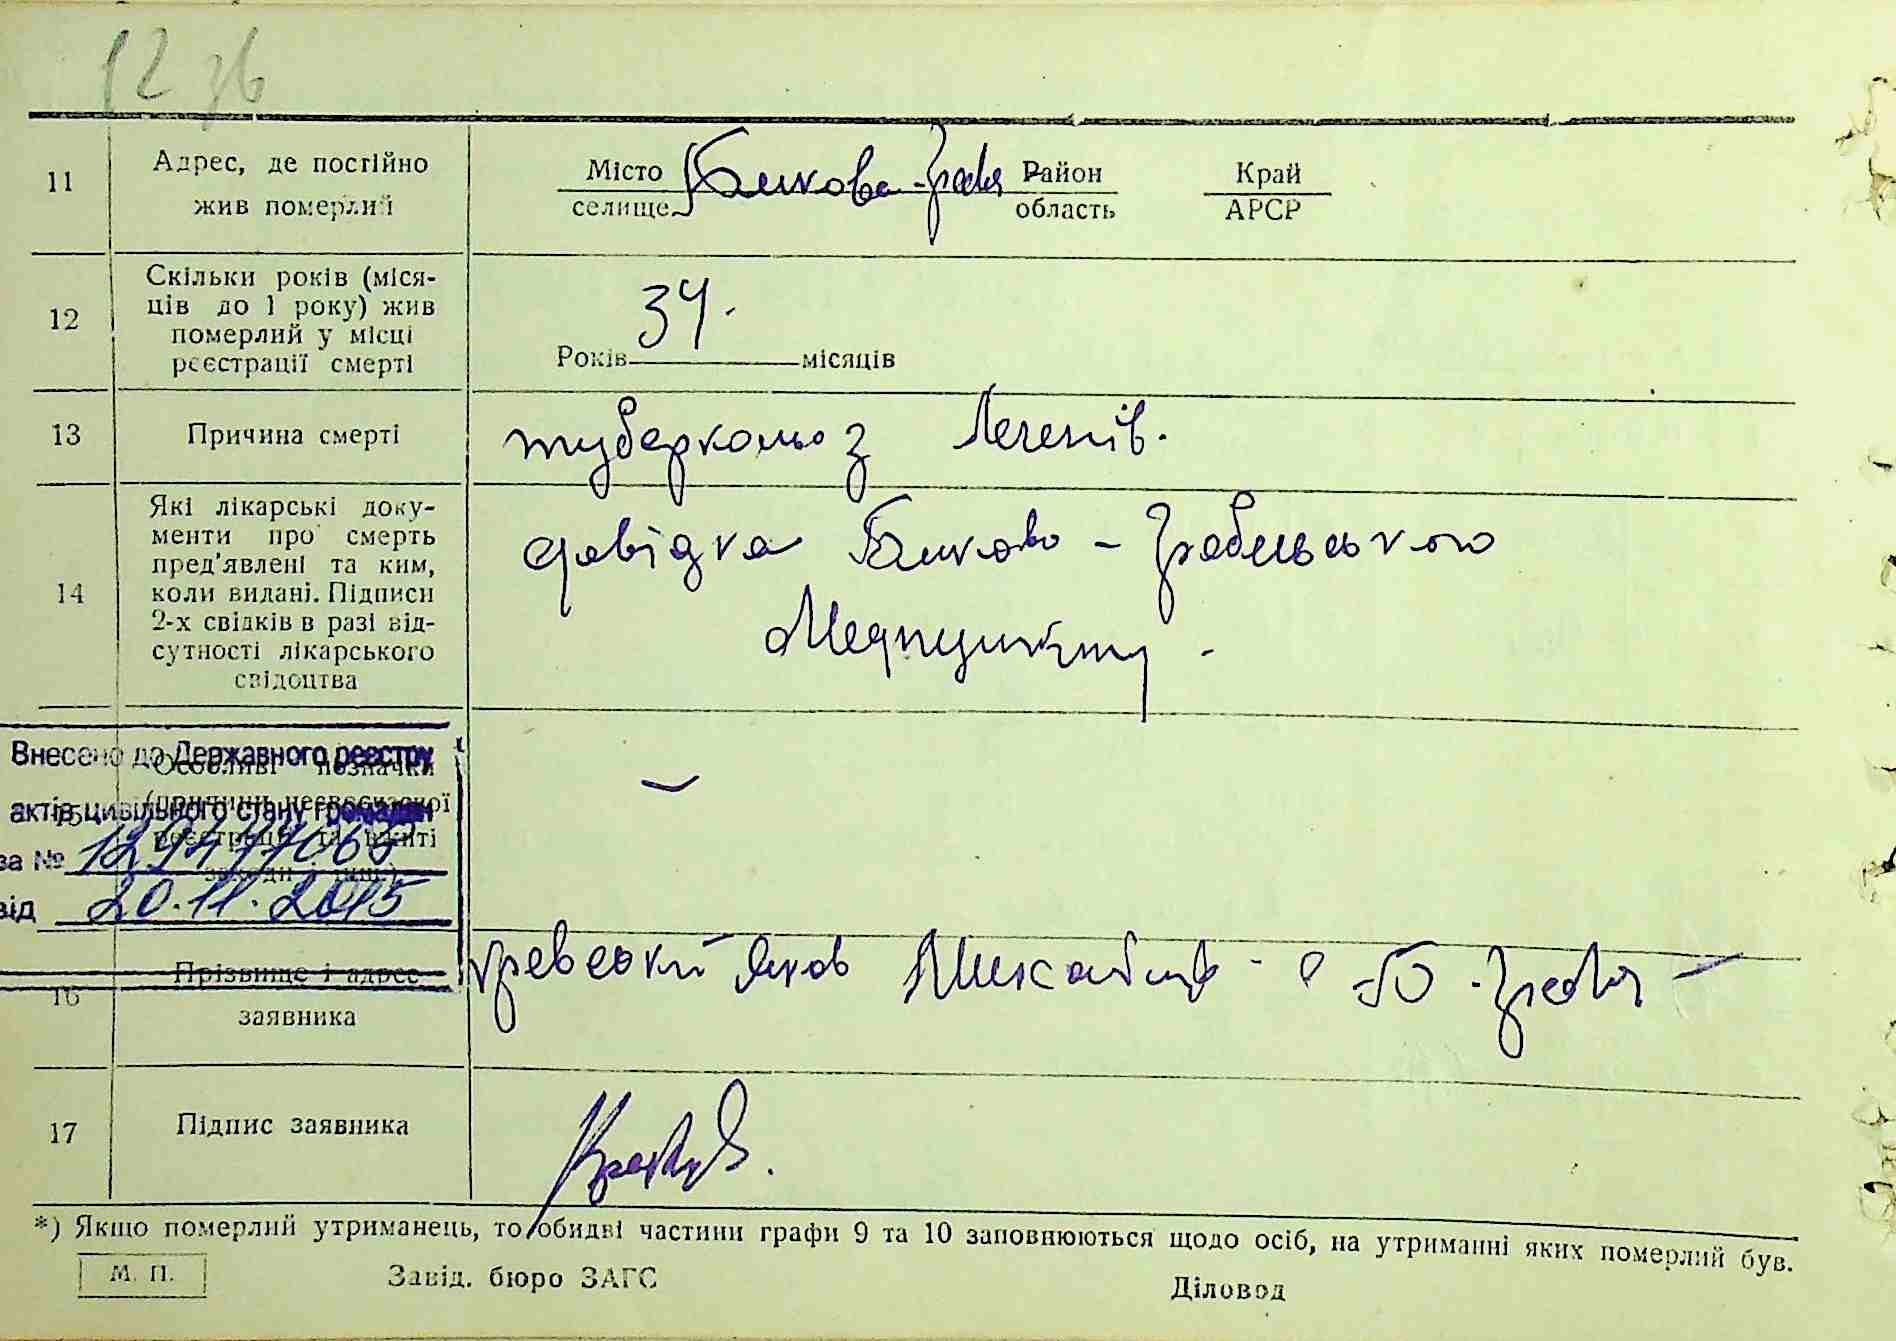 12 зв
11 Адрес, де постійно жив померлий Місто селище Билково-Грабля Район область Край АРСР
12 Скільки років (міся-
ців до 1 року) жив
померлий у місці
реєстрації смерті
Років 34. місяців
13 Причина смерті туберкольоз Легенів.
14 Які лікарські доку-
менти про смерть
пред'явлені та ким,
коли видані. Підписи
2-х свідків в разі від-
сутності лікарського
свідоцтва
довідка - Грабельського
Медпункту -
Внесено до Державного реєстру
актів цивільного стану громадян
за №
від 20.11.2015
15 Особливі позначки
(причини несвоєчасної
реєстрації та вжиті
заходи і інш.)
—
16 Прізвище і адрес
заявника
Яков -
17 Підпис заявника
*) Якщо померлий утриманець, то обидві частини графи 9 та 10 заповнюються щодо осіб, на утриманні яких померлий був.
М. П. Завід. бюро ЗАГС Діловод